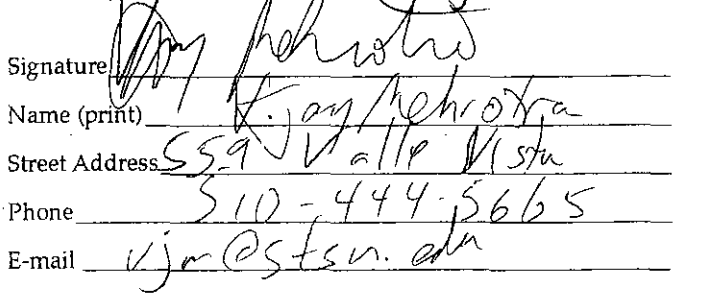 Signature
Name (print) Vijay Mehrotra
Street Address 559 Valle Vista
Phone 510-444-5665
E-mail vjm@stsn.edu